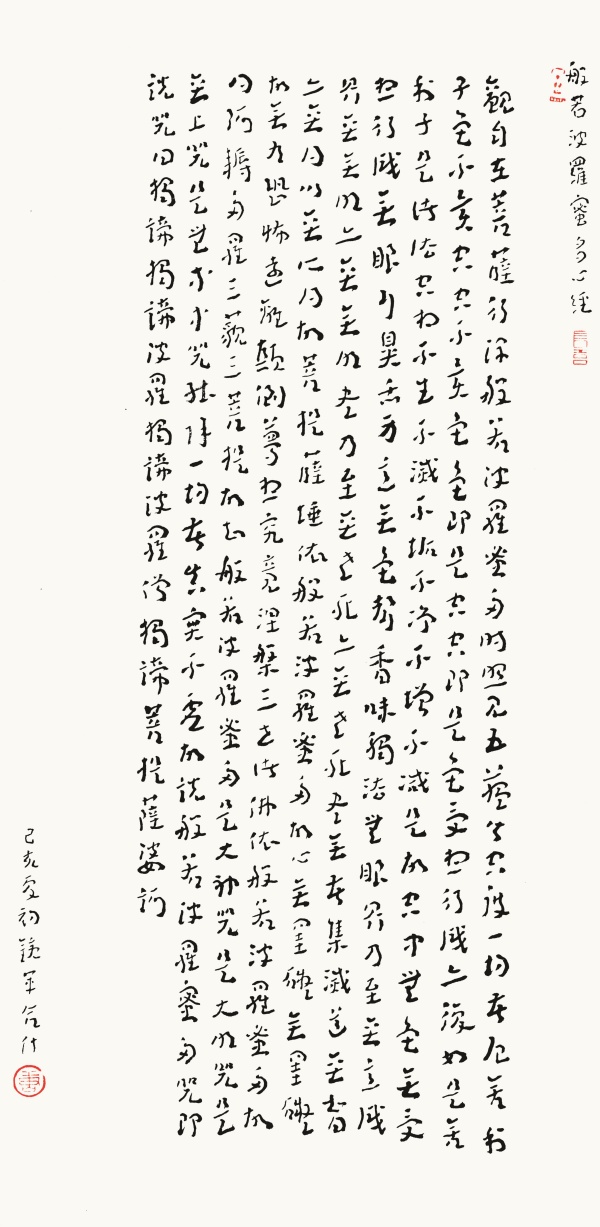 般若波羅蜜多心經
觀自在菩薩行深般若波羅蜜多時照見五蘊皆空度一切苦厄舍利
子色不異空空不異色色即是空空即是色受想行識亦復如是舍
利子是諸法空相不生不滅不垢不淨不增不減是故空中無色無受
想行識無眼耳鼻舌身意無色聲香味觸法無眼界乃至無意識
界無無明亦無無明盡乃至無老死亦無老死盡無苦集滅道無智
亦無得以無所得故菩提薩埵依般若波羅蜜多故心無罣礙無罣礙
故無有恐怖遠離顛倒夢想究竟涅槃三世諸佛依般若波羅蜜多故
得阿耨多羅三藐三菩提故知般若波羅蜜多是大神咒是大明咒是
無上咒是無等等咒能除一切苦真實不虛故說般若波羅蜜多咒即
說咒曰揭諦揭諦波羅揭諦波羅僧揭諦菩提薩婆訶
己亥夏初軍合什